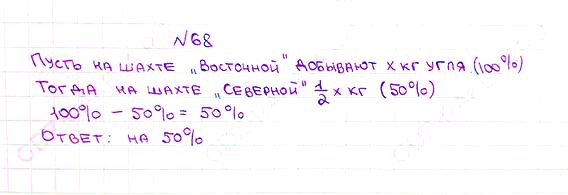 №68
Пусть на шахте „Восточной" добывают x кг угля (100%)
Тогда на шахте „Северной" 1/2 x кг (50%)
100% – 50% = 50%
Ответ: на 50%